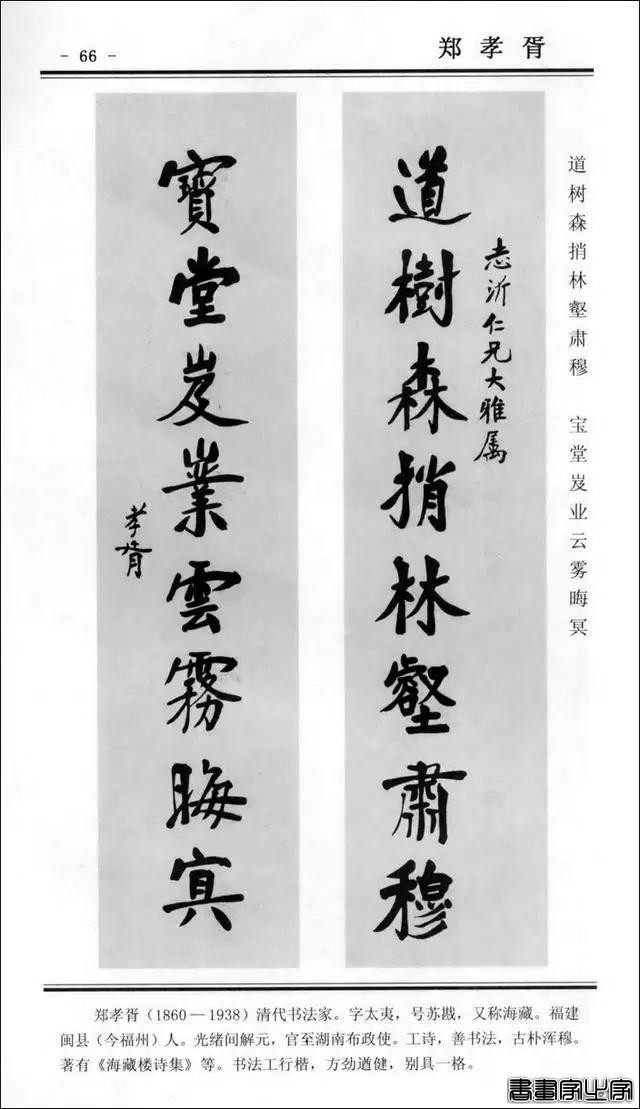 - 66 -
郑孝胥
道树森捎林壑肃穆 宝堂岌业云雾晦冥
志沂仁兄大雅属
道樹森捎林壑肅穆
寶堂岌業雲霧晦冥
孝胥
郑孝胥(1860—1938)清代书法家。字太夷,号苏戡,又称海藏。福建
闽县(今福州)人。光绪间解元,官至湖南布政使。工诗,善书法,古朴浑穆。
著有《海藏楼诗集》等。书法工行楷,方劲遒健,别具一格。
書畫家之家